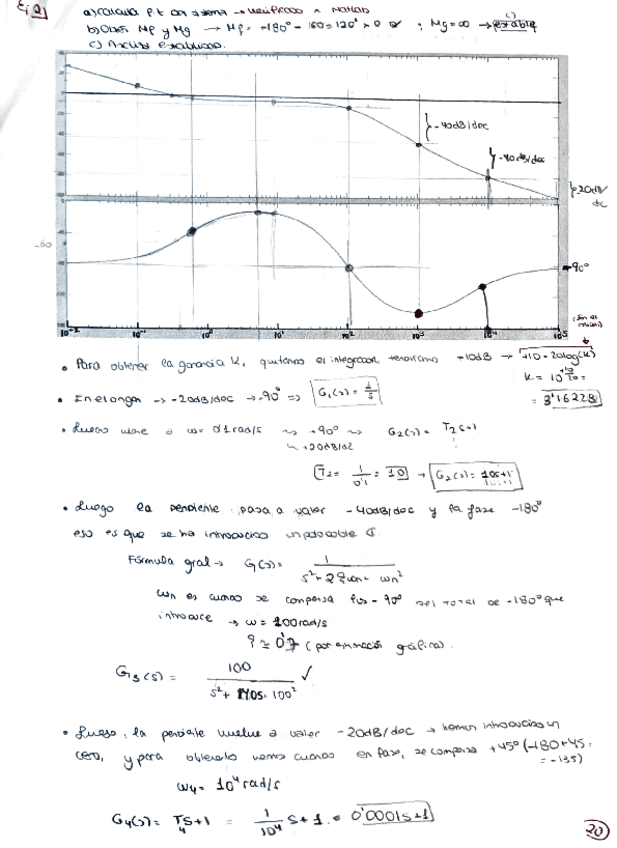 Ej 2)
a) Calcula f.t del sistema → Verificado x Matlab
b) Obten Mf y Mg → Mf = -180° - 160 = 120° > 0 ; Mg = ∞ → estable
c) Analiza estabilidad.
}-40dB/dec
}-40dB/dec
}-20dB/
dc
-60
-90°
10^-2
10^-1
10^0
10^1
10^2
10^3
10^4
10^5
• Para obtener la ganancia K, quitamos el integrador tenemos -10dB → +10 = 20log(K)
K = 10^(+10/20) =
= 3'16228
• En el origen → -20dB/dec → -90° ⇒ G1(s) = 1/s
• Luego ω = 0'1 rad/s ⇝ +90° ⇝ G2(s) = T2s+1
↳ +20dB/dc
T2 = 1/0'1 = 10 → G2(s) = 10s+1
• Luego la pendiente pasa a valer -40dB/dec y la fase -180°
eso es que se ha introducido un polo doble
Fórmula gral → G(s) = 1 / s² + 2ξωn + ωn²
ωn es cuando se compensa los -90° del total de -180° que
introduce → ω = 100 rad/s
ξ ≃ 0'7 (por estimación gráfica).
G3(s) = 100 / s² + 140s + 100² ✓
• Luego, la pendiente vuelve a valer -20dB/dec → hemos introducido un
cero, y para obtenerlo vemos cuando en fase, se compensa +45° (-180+45 =
= -135)
ω4 = 10⁴ rad/s
G4(s) = T4s+1 = 1/10⁴ s + 1 = 0'0001s+1
20